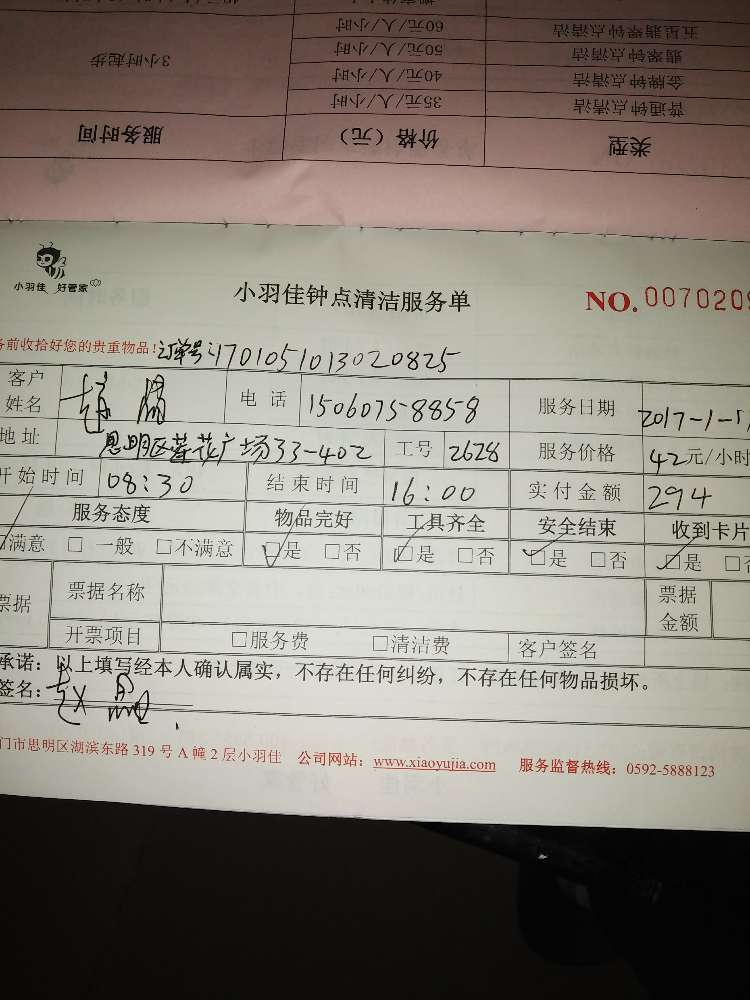 五星翡翠钟点清洁 60元/人/小时
翡翠钟点清洁 50元/人/小时 3小时起步
金牌钟点清洁 40元/人/小时
普通钟点清洁 35元/人/小时
类型 价格（元） 服务时间
小羽佳 好管家 小羽佳钟点清洁服务单 NO. 0070209
务前收拾好您的贵重物品！订单号：1701051013020825
客户姓名 电 话 15060758858 服务日期 2017-1-
地址 思明区莲花广场33-402 工号 2628 服务价格 42元/小时
开始时间 08:30 结束时间 16:00 实付金额 294
服务态度 物品完好 工具齐全 安全结束 收到卡片
□满意 □ 一般 □不满意 □是 □否 □是 □否 □是 □否 □是 □否
票据 票据名称 票据金额
开票项目 □服务费 □清洁费 客户签名
承诺：以上填写经本人确认属实，不存在任何纠纷，不存在任何物品损坏。
签名：
门市思明区湖滨东路 319 号 A 幢 2 层小羽佳 公司网站：www.xiaoyujia.com 服务监督热线：0592-5888123